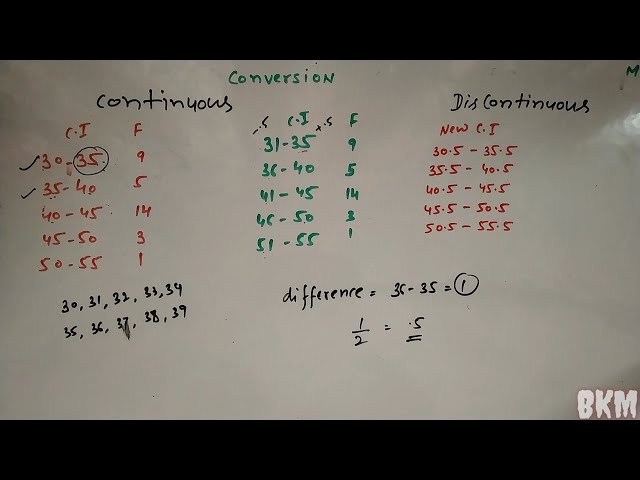 Conversion
M
Continuous
C.I F
30-35 9
35-40 5
40-45 14
45-50 3
50-55 1
30, 31, 32, 33, 34
35, 36, 37, 38, 39
-.5 C.I +.5 F
31-35 9
36-40 5
41-45 14
46-50 3
51-55 1
Discontinuous
New C.I
30.5-35.5
35.5-40.5
40.5-45.5
45.5-50.5
50.5-55.5
difference = 36-35 = 1
1/2 = .5
BKM